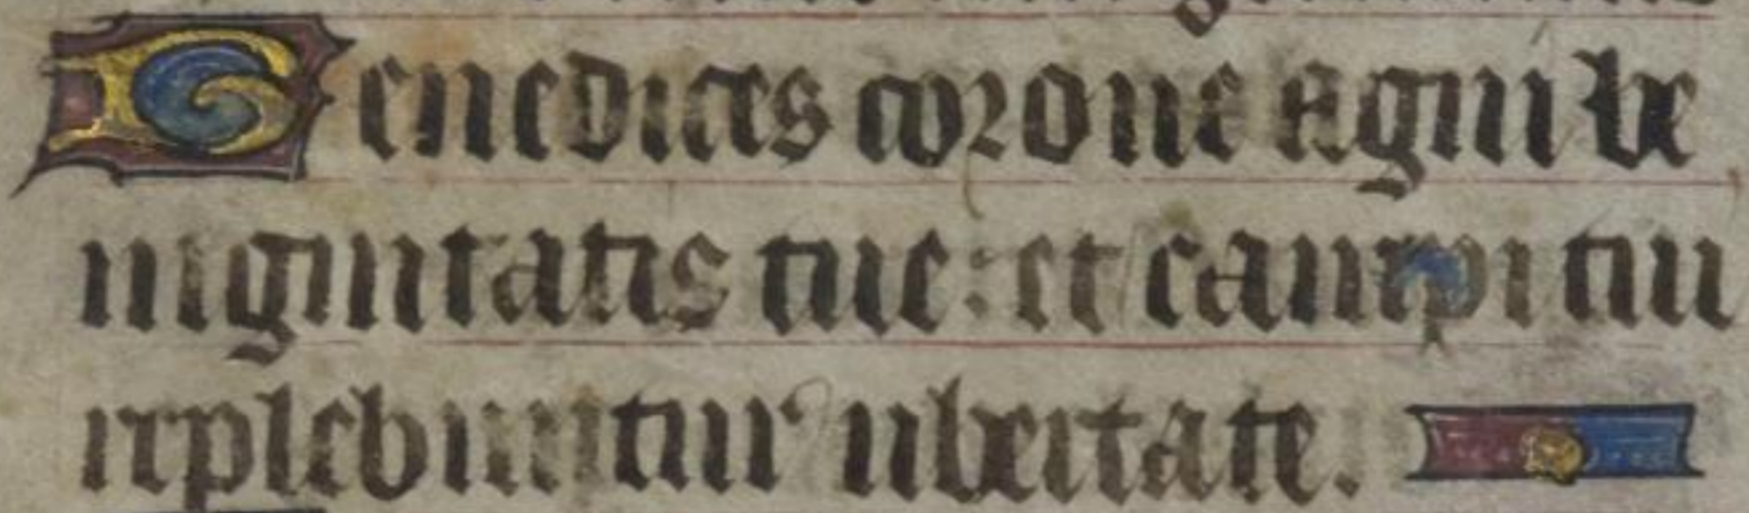 Benedices corone agni be
nignitatis tue: et campi tui
replebuntur ubertate.